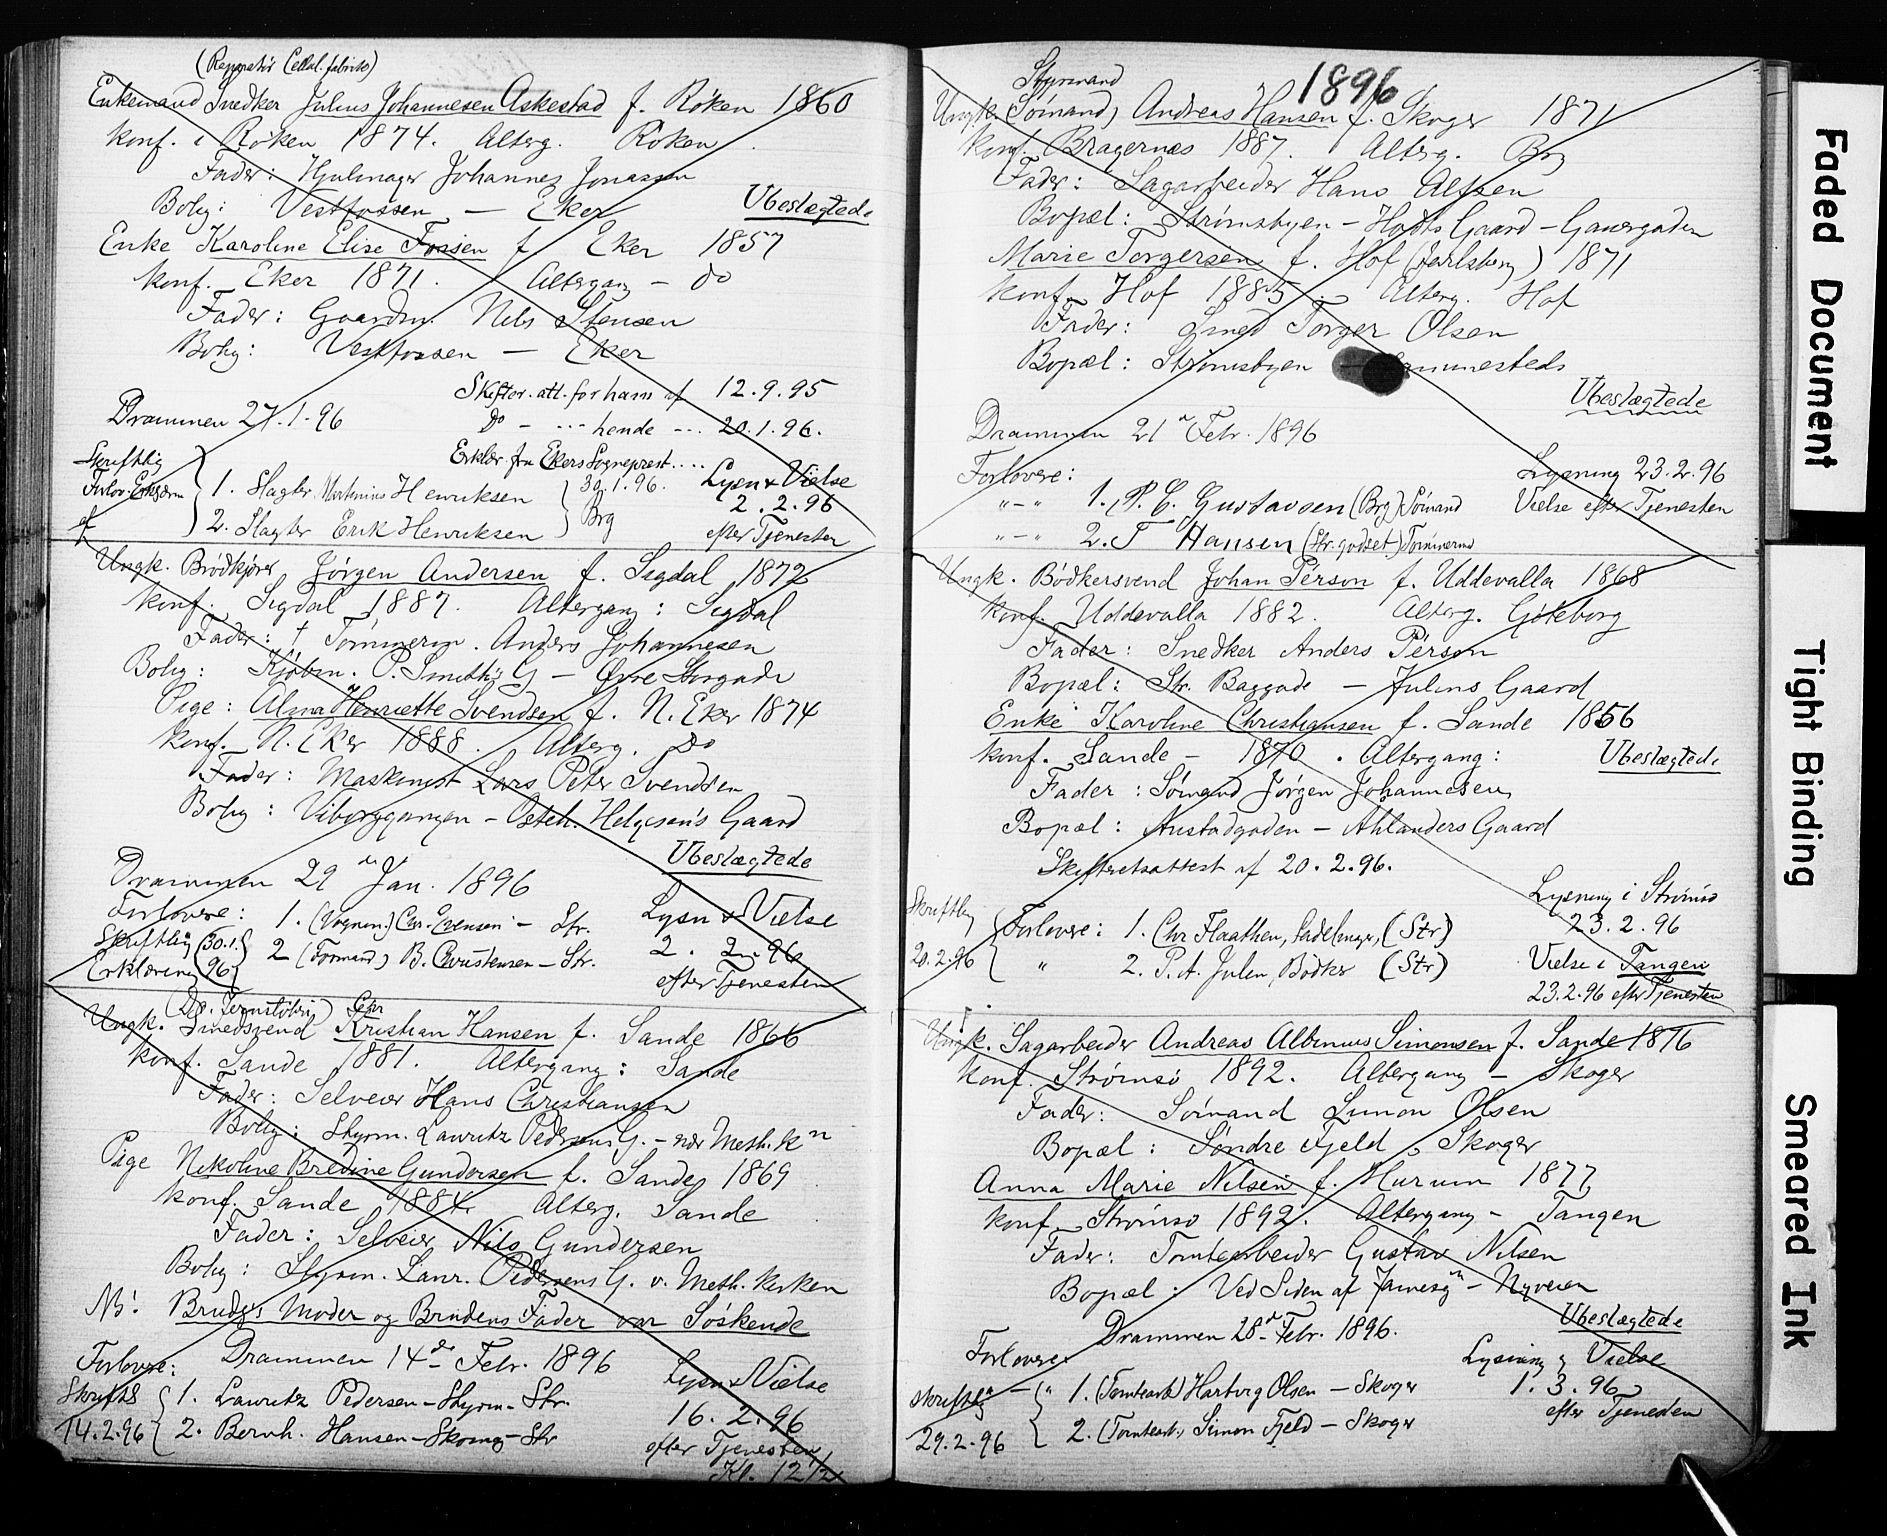 (Reparatør Cellul.fabrik)
Enkemand Snedker Julius Johannesen Askestad f. Röken 1860
Konf. i Röken 1874. Alterg. Röken
Fader: Hjulmager Johannes Jonassen
Bolig: Vestfossen — Eker Ubeslægtede
Enke Karoline Elise Fossen f Eker 1857
Konf. Eker 1871. Altergang — do
Fader: Gaardm. Nils Stensen
Bolig: Vestfossen — Eker
Skifter.att. for ham af 12.9.95
Drammen 27.1.96
Do - --- hende --- 20.1.96.
Erklær. fra Ekers Sogneprest....
Skriftlig Forlov.Erklærn af
1. Slagter Martinius Henriksen 30.1.96. Lysn & Vielse
2. Slagter Erik Henriksen Brg 2.2.96
efter Tjenesten
Ungk. Brödkjører Jörgen Andersen f. Sigdal 1872
Konf. Sigdal 1887. Altergang: Sigdal
Fader: † Tömmerm. Anders Johannesen
Bolig: Kjöbm. P. Smiths G — Övre Storgade
Pige: Alma Henriette Svendsen f. N. Eker 1874
Konf. N. Eker 1888. Alterg. do
Fader: Maskinist Lars Peter Svendsen
Bolig: Viborggangen — Osteh. Helgesens Gaard
Ubeslægtede
Drammen 29 Jan. 1896
Forlovere: 1. (Vognm.) Chr. Evensen — Str. Lysn & Vielse
Skriftlig Erklæring 30.1.96 2 (Formand) B. Christensen — Str. 2. 2. 96
efter Tjenesten
Ungk. Smedsvend Kristian Hansen f. Sande 1866
Konf. Sande 1881. Altergang: Sande
Fader: Selveier Hans Christiansen
Bolig: Styrm. Lauritz Pedersens G. — nær Meth. Kn
Pige Nikoline Bredine Gundersen f. Sande 1869
Konf. Sande 1884. Alterg. Sande
Fader: Selveier Nils Gundersen
Bolig: Styrm. Laur. Pedersens G. v. Meth. kirken
NB! Brudgs Moder og Brudens Fader var Söskende
Drammen 14de Febr. 1896
Forlovere:
Skriftl 1. Lauritz Pedersen — Styrm — Str. Lysn & Vielse
14.2.96 2. Bernh. Hansen — Skomg — Str 16. 2. 96
efter Tjenesten
Kl. 12 1/2
1896
Styrmand
Ungk. (Sömand) Andreas Hansen f. Skoger 1871
Konf. Bragernæs 1887. Alterg. Brg
Fader: Sagarbeider Hans Alfsen
Bopæl: Strömsbyen — Holts Gaard — Gausegaden
Marie Torgersen f. Hof (Jarlsberg) 1871
Konf. Hof 1885. Alterg. Hof
Fader: Smed Torger Olsen
Bopæl: Strömsbyen — sammesteds
Ubeslægtede
Drammen 21 Febr. 1896
Forlovere: Lysning 23.2.96
"-" 1. P. C. Gustavsen (Brg) Sömand Vielse efter Tjenesten
"-" 2. T Hansen (Str. godset) Tömmerm
Ungk. Bödkersvend Johan Pérson f. Uddevalla 1868
Konf. Uddevalla 1882. Alterg. Göteborg
Fader: Snedker Anders Pérson
Bopæl: Str. Baggade — Julins Gaard
Enke Karoline Christiansen f. Sande 1856
Konf. Sande — 1870. Altergang: Ubeslægtede
Fader: Sömand Jörgen Johannesen
Bopæl: Austadgaden — Ahlanders Gaard
Skifteretsattest af 20.2.96.
Lysning i Strömsö
Skriftlig Forlovere: 1. Chr Flaathen, Sadelmager, (Str) 23.2.96
20.2.96 " 2. P. A. Julin, Bödker (Str) Vielse i Tangen
23.2.96 efter Tjenesten
Ungk. Sagarbeider Andreas Albinius Simonsen f. Sande 1876
Konf. Strömsö 1892. Altergang — Skoger
Fader: Sömand Simon Olsen
Bopæl: Söndre Fjeld, Skoger
Anna Marie Nilsen f. Hurum 1877
Konf. Strömsö 1892. Altergang — Tangen
Fader: Tomtearbeider Gustav Nilsen
Bopæl: Ved Siden af — Nyveien
Ubeslægtede
Drammen 28de Febr. 1896.
Forlovere: Lysning & Vielse
Skriftlig — " 1. (Tomtearb) Hartvig Olsen — Skoger 1. 3. 96
29.2.96 2. (Tomtearb.) Simon Fjeld — Skoger efter Tjenesten
Faded Document
Tight Binding
Smeared Ink